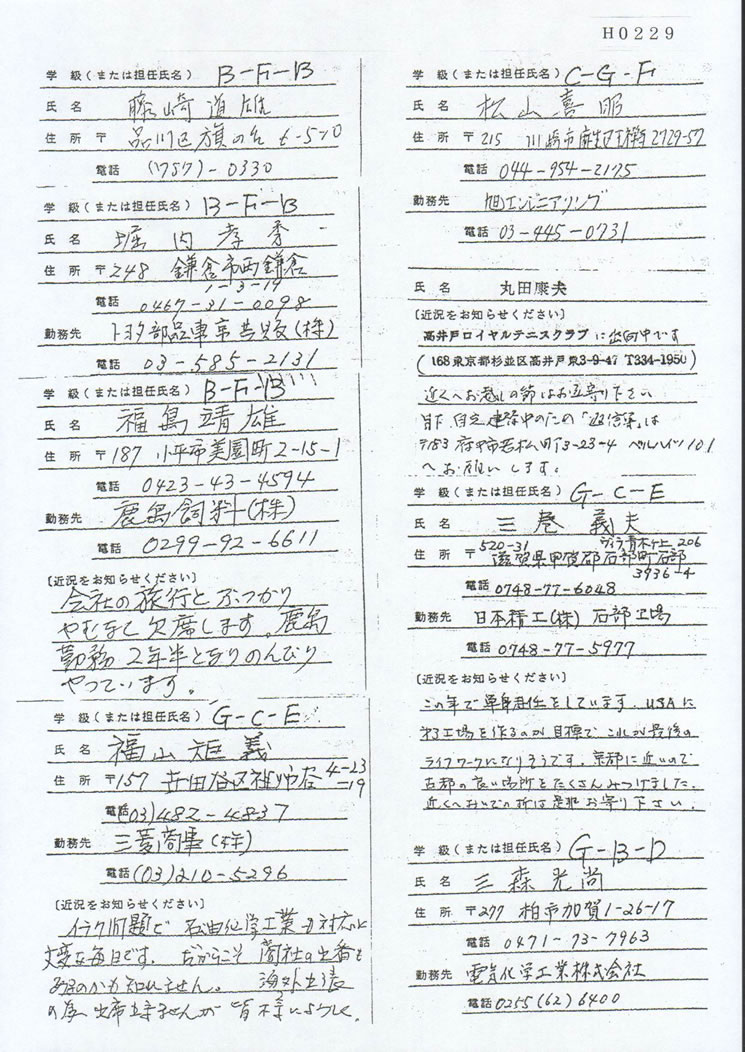 H0229
学 級(または担任氏名) B-F-B
氏 名 藤崎道雄
住 所 〒 品川区旗の台 6-5-
電話 (757)-0330
学 級(または担任氏名) B-F-B
氏 名 堀内孝秀
住 所 〒248 鎌倉市西鎌倉
1-3-19
電話 0467-31-0098
勤務先 トヨタ部品東京共販(株)
電話 03-585-2131
学 級(または担任氏名) B-F-B
氏 名 福島靖雄
住 所 〒187 小平市美園町2-15-1
電話 0423-43-4594
勤務先 鹿島飼料(株)
電話 0299-92-6611
〔近況をお知らせください〕
会社の旅行とぶつかり
やむなく欠席します。鹿島
勤務2年半となりのんびり
やっています。
学 級(または担任氏名) G-C-E
氏 名 福山矩義
住 所 〒157 世田谷区祖師谷 4-23
-19
電話 (03)482-4837
勤務先 三菱商事(株)
電話 (03)210-5296
〔近況をお知らせください〕
イラク問題で 石油化学工業も対応に
大変な毎日です。だからこそ 商社の出番も
あるのかも知れません。 海外出張
の為 出席出来ませんが 皆不幸によろしく。
学 級(または担任氏名) C-G-F
氏 名 松山喜昭
住 所 〒215 川崎市麻生区王禅寺2729-57
電話 044-954-2175
勤務先 旭エンジニアリング
電話 03-445-0731
氏 名 丸田康夫
〔近況をお知らせください〕
高井戸ロイヤルテニスクラブに出向中です
(168東京都杉並区高井戸東3-9-47 T334-1950)
近くへお越しの節はお立寄り下さい
目下自宅建築中のため「返信」は
〒183 府中市若松町3-23-4 ベルハイツ101
へお願いします。
学 級(または担任氏名) G-C-E
氏 名 三巻義夫
住 所 〒520-31 206
滋賀県甲賀郡石部町石部
3936-4
電話 0748-77-6048
勤務先 日本精工(株) 石部工場
電話 0748-77-5977
〔近況をお知らせください〕
この年で単身赴任をしています. USAに
工場を作るのが目標で これが最後の
ライフワークになりそうです. 京都に近いので
古都の良い場所をたくさんみつけました.
近くへおいでの折は是非お寄り下さい.
学 級(または担任氏名) G-B-D
氏 名 三森光尚
住 所 〒277 柏市加賀1-26-17
電話 0471-73-7963
勤務先 電気化学工業株式会社
電話 0255(62)6400